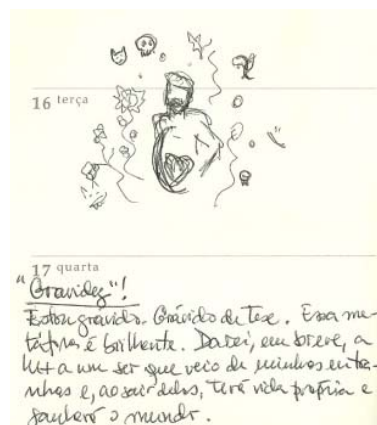 16 terça
17 quarta
"Gravidez"!
Estou grávido. Grávido de Tese. Essa me-
táfora é brilhante. Darei, em breve, a
luz a um ser que veio de minhas entra-
nhas e, ao sair delas, terá vida própria e
ganhará o mundo.